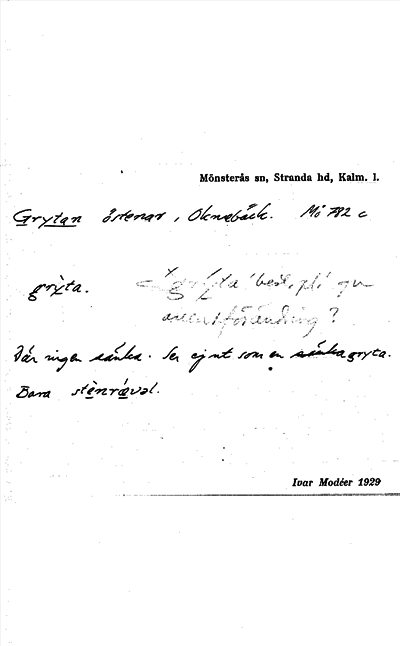 Mönsterås sn, Stranda hd, Kalm. l.
Grytan östenar, Oknebäck. Mö 782 c
grỳta.
grýta best. pl. gm
accentförändring?
Där ingen sänka. Ser ej ut som en sänka gryta.
Bara stènrǿvəl.
Ivar Modéer 1929